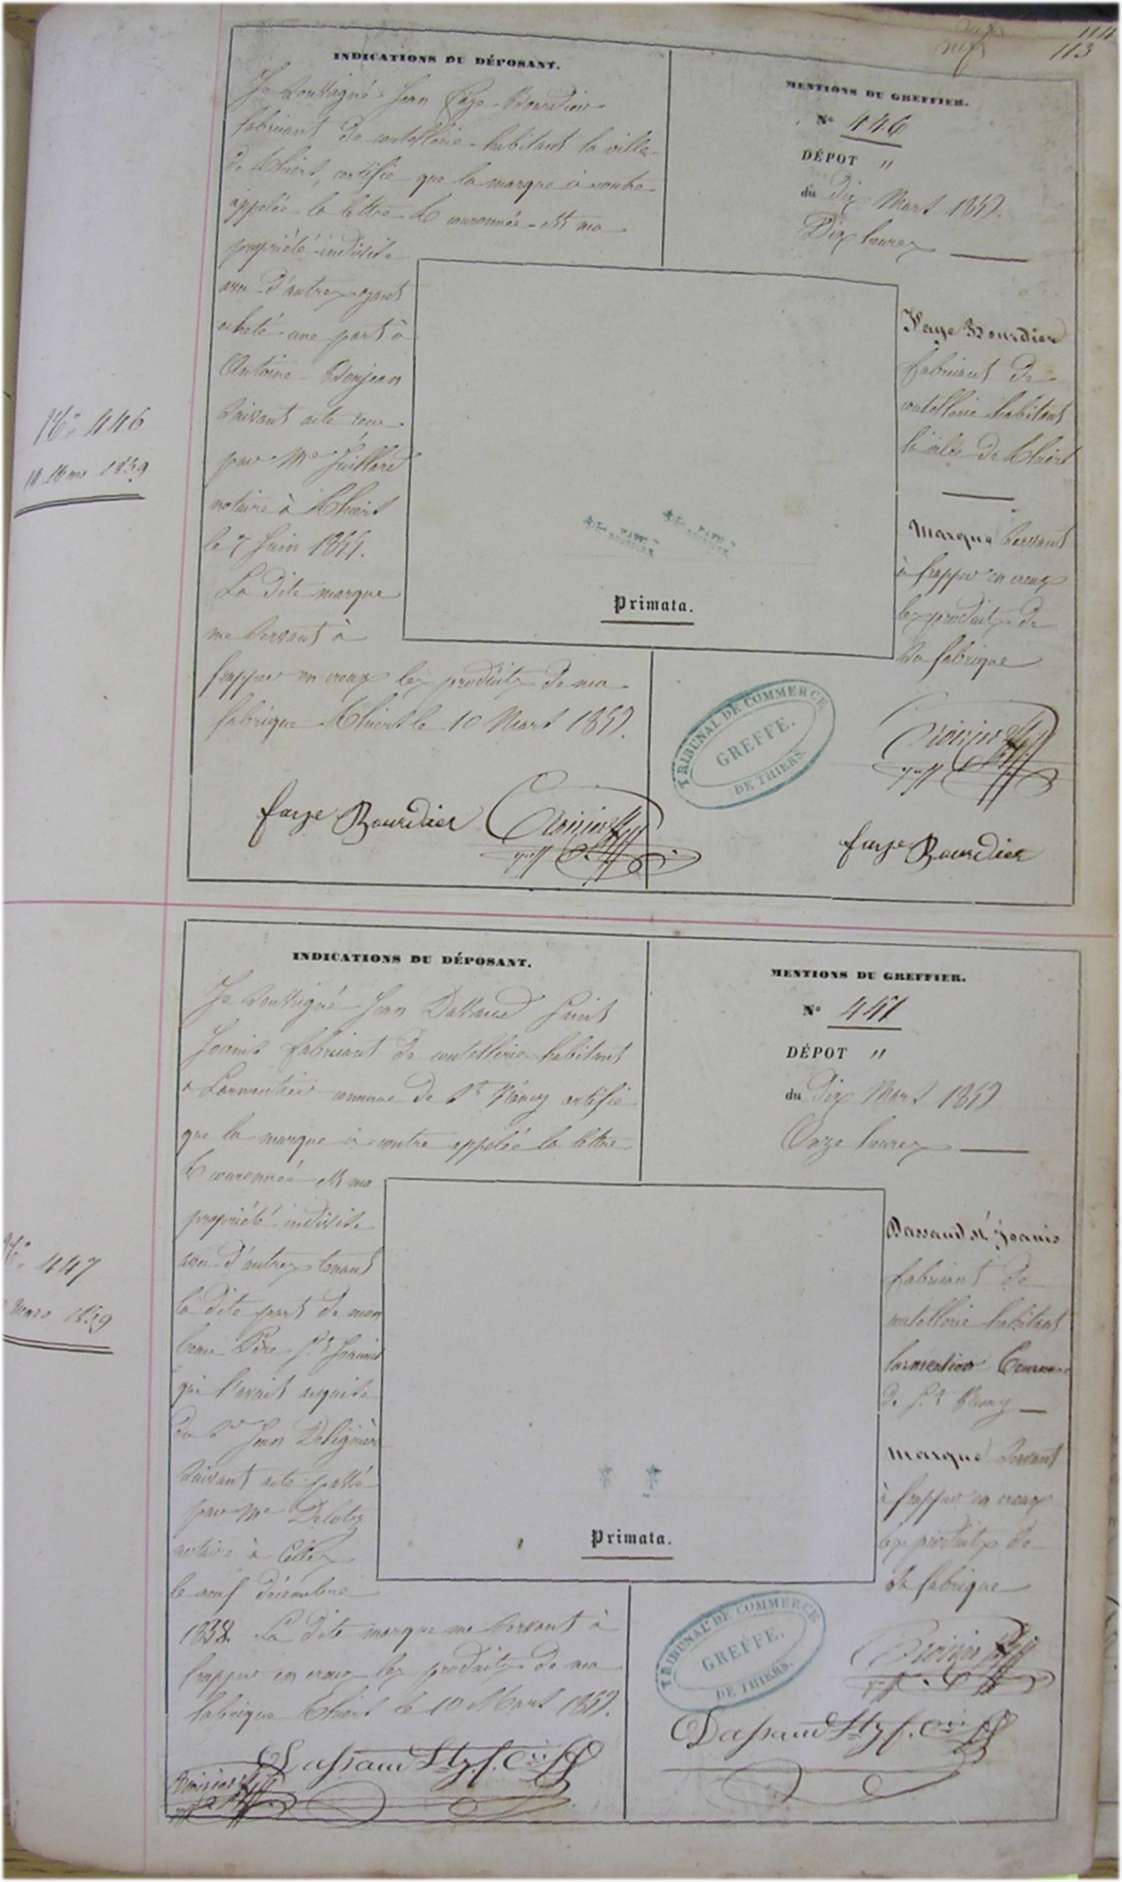 114
113
INDICATIONS DU DÉPOSANT.
Je soussigné Jean Farge Bourdier
fabricant de coutellerie habitant la ville
de Thiers, certifie que la marque ci contre
appelée la lettre couronnée est ma
propriété indivise
avec d'autres ayant
acheté une part à
Antoine
suivant acte reçu
par Me
notaire à Thiers
le 7 Juin
La dite marque
me servant à
frapper en creux les produits de ma
fabrique Thiers le 10 Mars 1859.
farge Bourdier
MENTIONS DU GREFFIER.
No 446
DÉPOT "
du dix Mars 1859.
Dix heures
Farge Bourdier
fabricant de
coutellerie habitant
la ville de Thiers
Marque servant
à frapper en creux
les produits de
sa fabrique
farge Bourdier
Primata.
TRIBUNAL DE COMMERCE
GREFFE.
DE THIERS.
No 446
10 Mars 1859
INDICATIONS DU DÉPOSANT.
Je soussigné Jean Dassaud Saint
Joanis fabricant de coutellerie habitant
à commune de St Rémy certifie
que la marque ci contre appelée la lettre
couronnée est ma
propriété indivise
avec d'autres tenant
la dite part de mon
beau Père St Joanis
qui l'avait acquise
du Sr Jean
suivant acte passé
par Me
notaire à Celles
le neuf décembre
1838. La dite marque me servant à
frapper en creux les produits de ma
fabrique Thiers le 10 Mars 1859.
Dassaud
MENTIONS DU GREFFIER.
No 447
DÉPOT "
du dix Mars 1859
Onze heures
Dassaud St Joanis
fabricant de
coutellerie habitant
Commune
de St Rémy
Marque servant
à frapper en creux
les produits de
sa fabrique
Dassaud
Primata.
TRIBUNAL DE COMMERCE
GREFFE.
DE THIERS.
No 447
Mars 1859